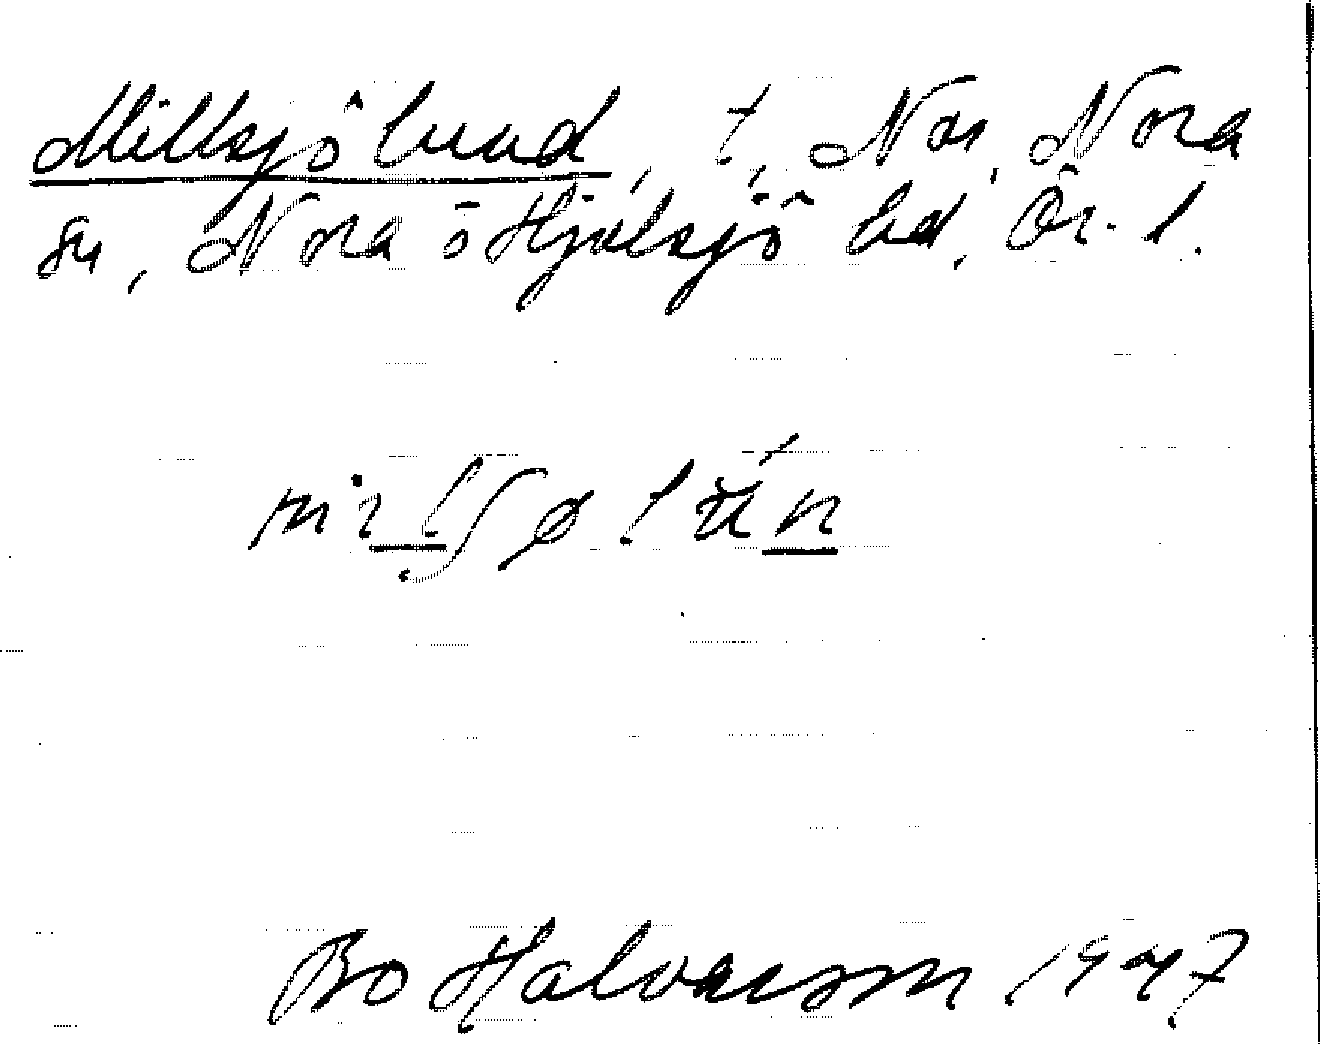 Millsjölund, t, Nor, Nora
sn, Nora o Hjulsjö hd, Ör. l.
Bo Halvarsson 1947